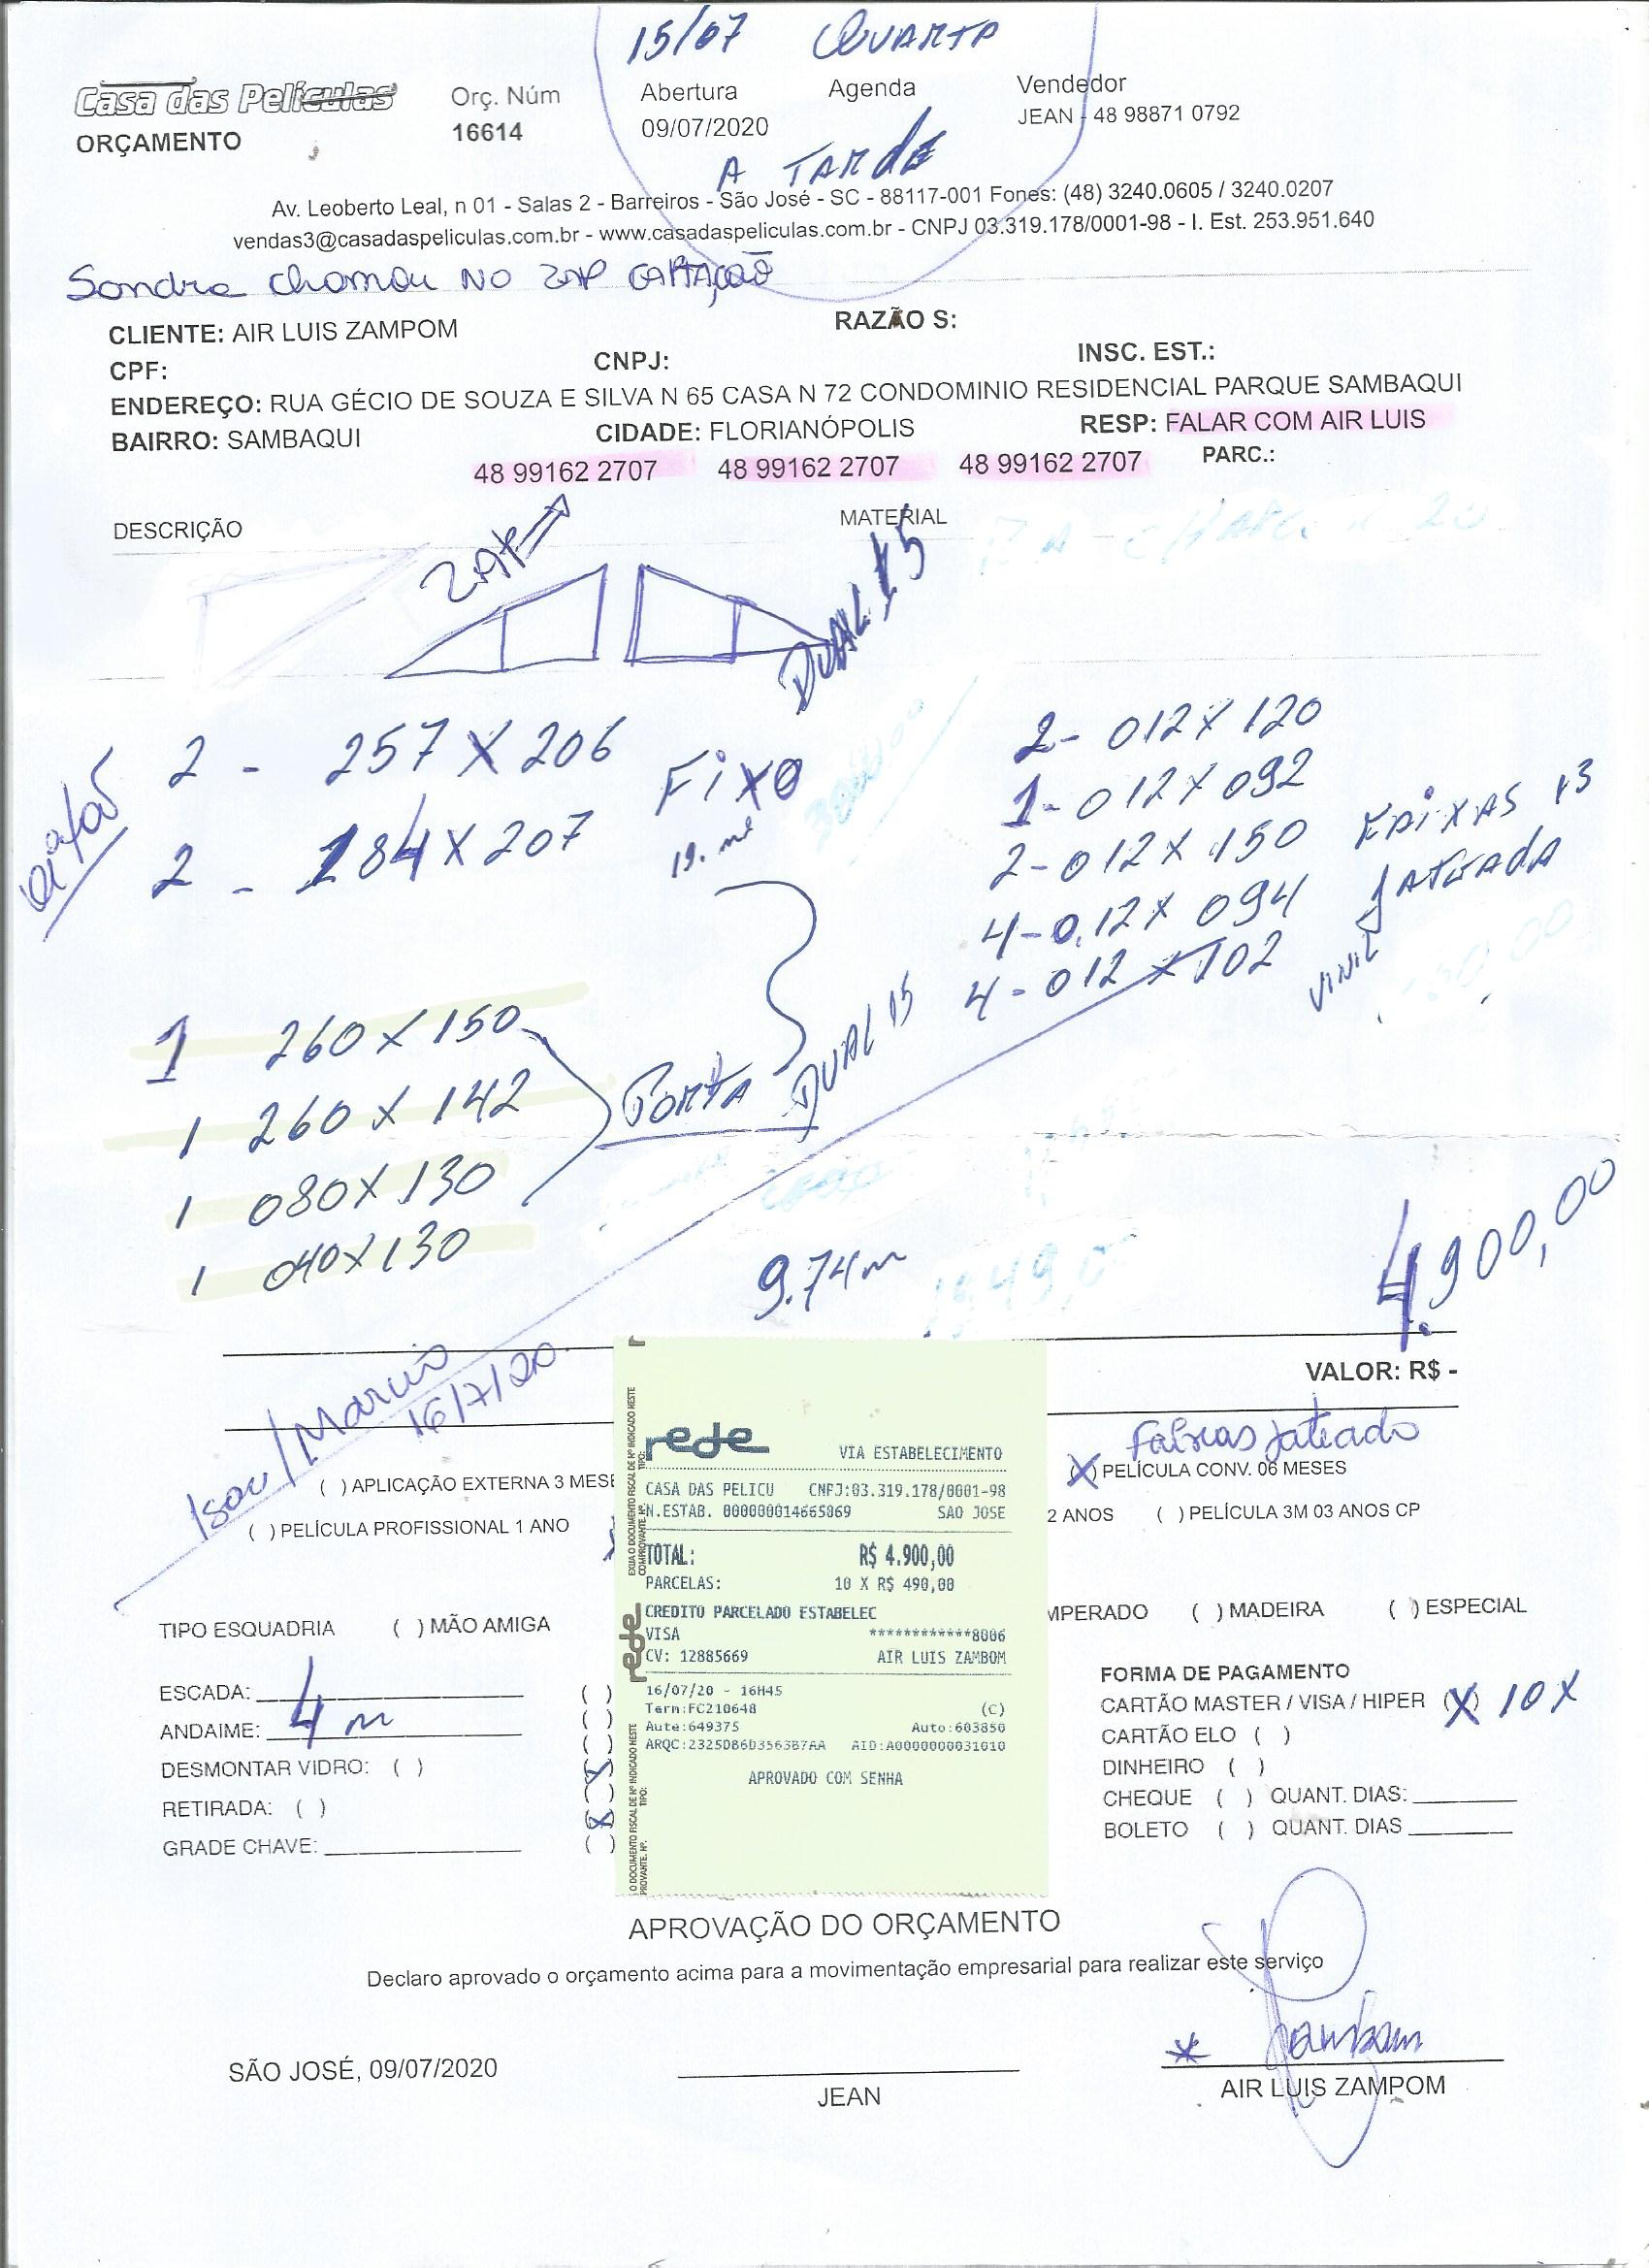 15/07 QUARTA
Casa das Películas
ORÇAMENTO
Orç. Núm
16614
Abertura
09/07/2020
Agenda
Vendedor
JEAN - 48 98871 0792
A TARDE
Av. Leoberto Leal, n 01 - Salas 2 - Barreiros - São José - SC - 88117-001 Fones: (48) 3240.0605 / 3240.0207
vendas3@casadaspeliculas.com.br - www.casadaspeliculas.com.br - CNPJ 03.319.178/0001-98 - I. Est. 253.951.640
Sandra chamou NO ZAP CAPTAÇÃO
CLIENTE: AIR LUIS ZAMPOM RAZÃO S:
CPF: CNPJ: INSC. EST.:
ENDEREÇO: RUA GÉCIO DE SOUZA E SILVA N 65 CASA N 72 CONDOMINIO RESIDENCIAL PARQUE SAMBAQUI
BAIRRO: SAMBAQUI CIDADE: FLORIANÓPOLIS RESP: FALAR COM AIR LUIS
48 99162 2707 48 99162 2707 48 99162 2707 PARC.:
DESCRIÇÃO MATERIAL
ZAP
DUAL 15
2 - 257 X 206
2 - 184 X 207
FIXO
19. m²
2 - 012 X 120
1 - 012 X 092
2 - 012 X 150
4 - 0.12 X 094
4 - 012 X 102
FAIXAS
VINIL JATEADA
1 260 X 150
1 260 X 142
1 080 X 130
1 040 X 130
PORTA DUAL 15
9.74m
4.900,00
VALOR: R$ -
Isau/Marcio
16/7/20
Faixas jateado
( ) APLICAÇÃO EXTERNA 3 MESE
(X) PELÍCULA CONV. 06 MESES
( ) PELÍCULA PROFISSIONAL 1 ANO
2 ANOS ( ) PELÍCULA 3M 03 ANOS CP
TIPO ESQUADRIA ( ) MÃO AMIGA
MPERADO ( ) MADEIRA ( ) ESPECIAL
ESCADA:
ANDAIME: 4 m
DESMONTAR VIDRO: ( )
RETIRADA: ( )
GRADE CHAVE:
rede
VIA ESTABELECIMENTO
CASA DAS PELICU CNPJ:03.319.178/0001-98
N.ESTAB. 000000014665869 SAO JOSE
TOTAL: R$ 4.900,00
PARCELAS: 10 X R$ 490,00
CREDITO PARCELADO ESTABELEC
VISA ************8006
CV: 12885669 AIR LUIS ZAMBOM
16/07/20 - 16H45
Term:FC210648 (C)
Aute:649375 Auto:603850
ARQC:2325D86D3563B7AA AID:A0000000031010
APROVADO COM SENHA
rede
FORMA DE PAGAMENTO
CARTÃO MASTER / VISA / HIPER (X) 10X
CARTÃO ELO ( )
DINHEIRO ( )
CHEQUE ( ) QUANT. DIAS:
BOLETO ( ) QUANT. DIAS
APROVAÇÃO DO ORÇAMENTO
Declaro aprovado o orçamento acima para a movimentação empresarial para realizar este serviço
Zambom
SÃO JOSÉ, 09/07/2020
JEAN
AIR LUIS ZAMPOM